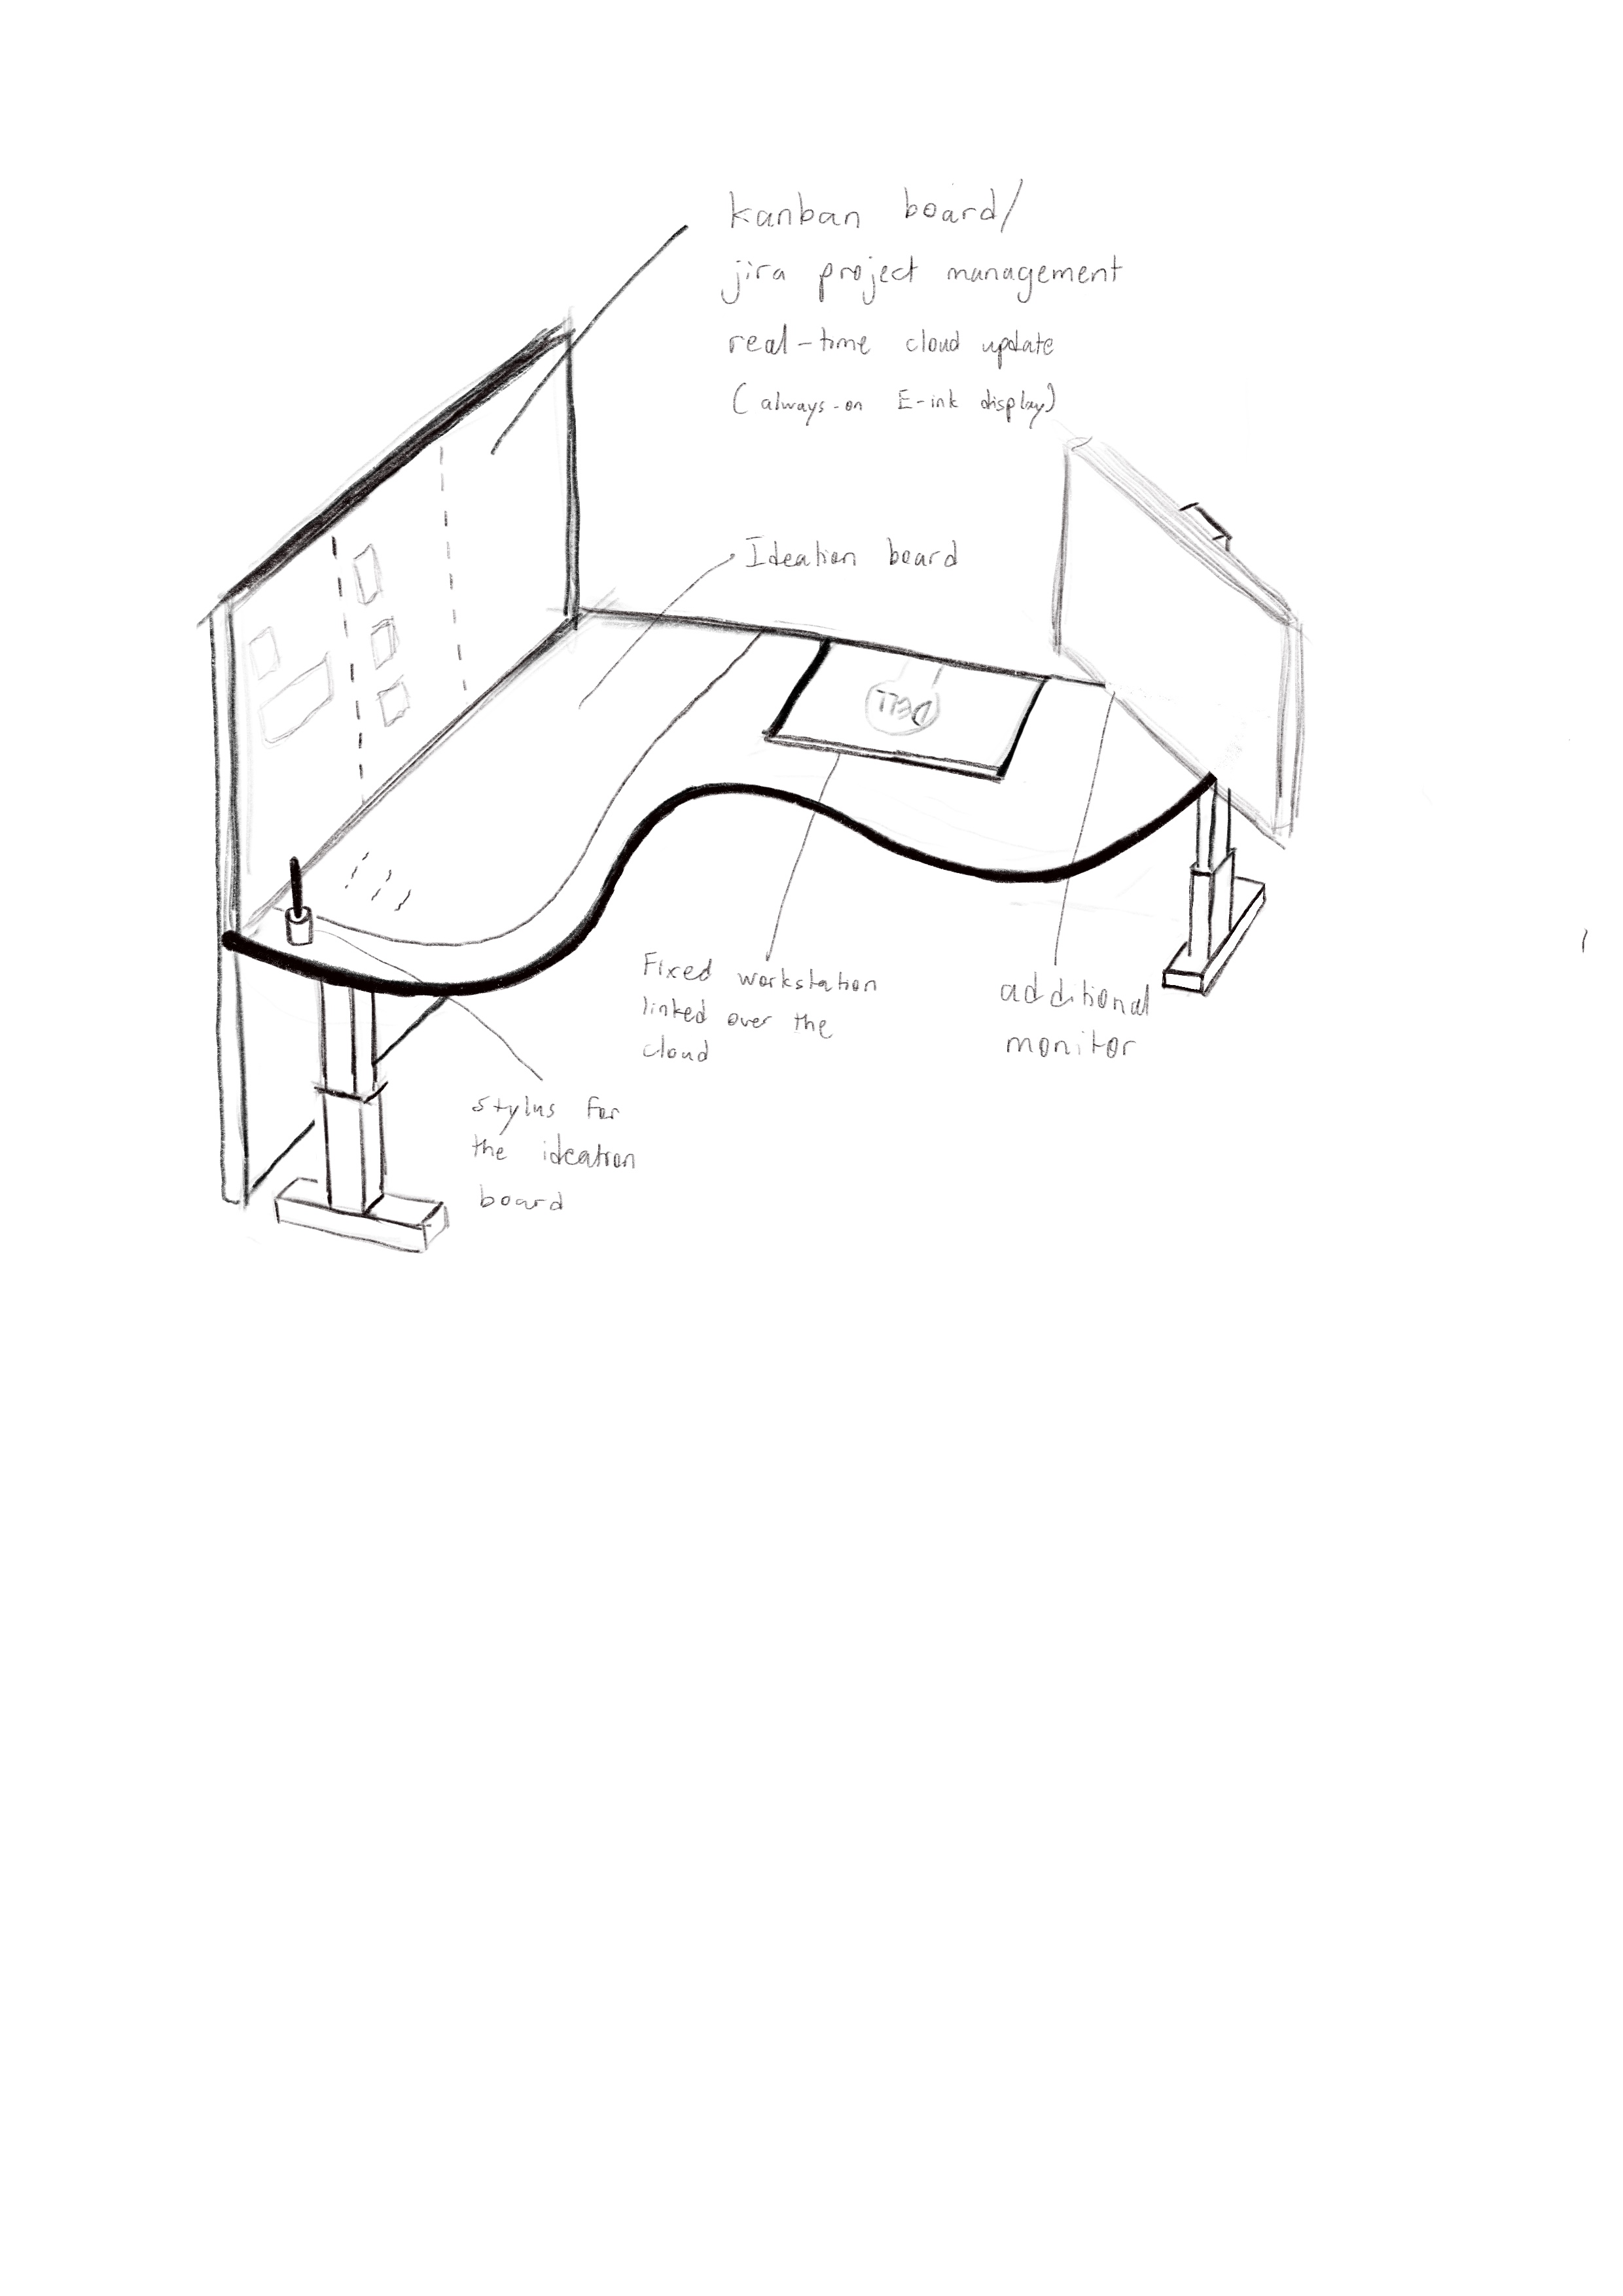 kanban board/
jira project management
real-time cloud update
(always-on E-ink display)
Ideation board
DELL
Fixed workstation
linked over the
cloud
additional
monitor
Stylus for
the ideation
board